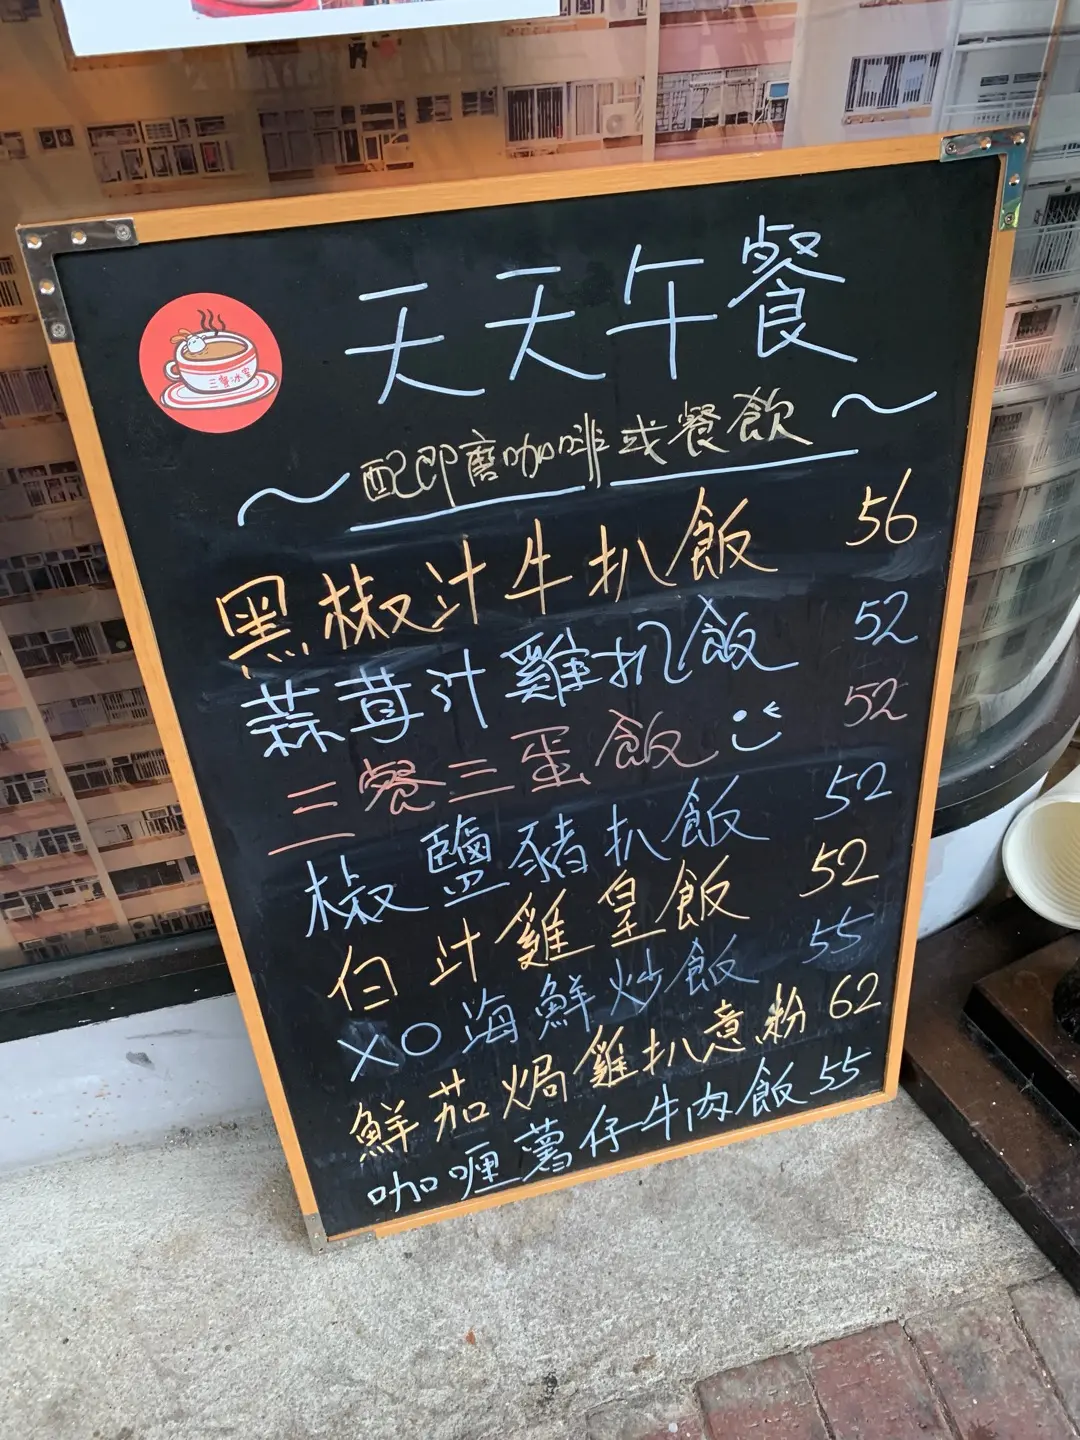 三餐冰室
天天午餐
配即磨咖啡或餐飲
黑椒汁牛扒飯 56
蒜茸汁雞扒飯 52
三餐三蛋飯 52
椒鹽豬扒飯 52
白汁雞皇飯 52
XO海鮮炒飯 55
鮮茄焗雞扒意粉 62
咖喱薯仔牛肉飯 55